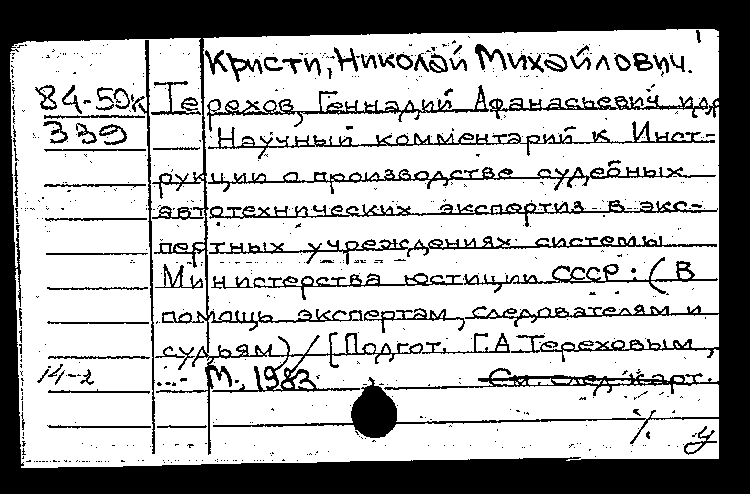 Кристи, Николай Михайлович.
84-50к Терехов, Геннадий Афанасьевич и др
339 Научный комментарий к Инст-
рукции о производстве судебных
автотехнических экспертиз в экс-
пертных учреждениях системы
Министерства юстиции СССР : (В
помощь экспертам, следователям и
судьям) / [Подгот. Г.А. Тереховым,
14-2 ...- М., 1983 См. след. карт.